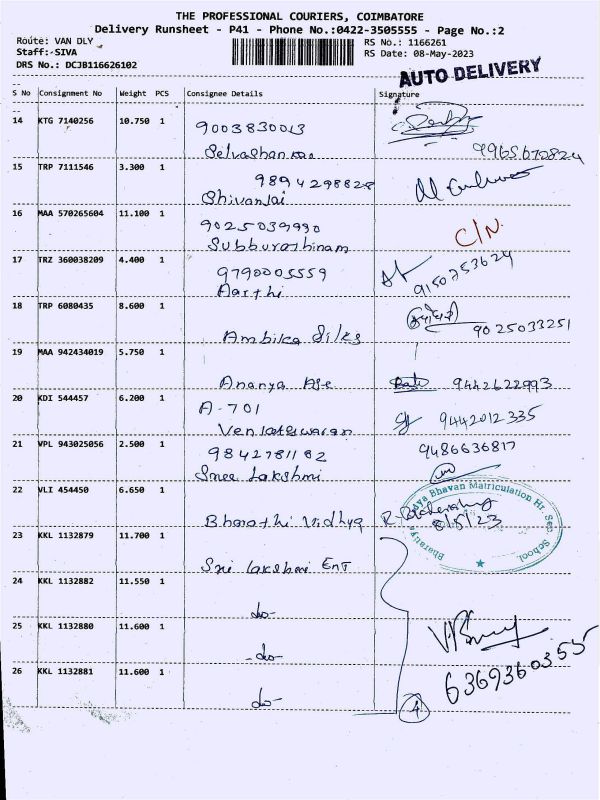 THE PROFESSIONAL COURIERS, COIMBATORE
Delivery Runsheet - P41 - Phone No.:0422-3505555 - Page No.:2
Route: VAN DLY
RS No.: 1166261
Staff:-SIVA
RS Date: 08-May-2023
DRS No.: DCJB116626102
AUTO DELIVERY
S No Consignment No Weight PCS Consignee Details Signature
14 KTG 7140256 10.750 1
9003830013
Selvashan
9965670824
15 TRP 7111546 3.300 1
9894298828
Shivanjai
16 MAA 570265604 11.100 1
9025039990
Subburathinam
C/N.
17 TRZ 360038209 4.400 1
9790005559
Aarthi
9150753624
18 TRP 6080435 8.600 1
Ambika Silks
9025033251
19 MAA 942434019 5.750 1
Ananya
9442622993
20 KDI 544457 6.200 1
A-701
Venkateswaran
9442012335
21 VPL 943025056 2.500 1
9842781182
Sree Lakshmi
9486636817
22 VLI 454450 6.650 1
Bharathi Vidhya
Bharatiya Vidya Bhavan Matriculation Hr. Sec. School
8/5/23
23 KKL 1132879 11.700 1
Sri lakshmi Ent
24 KKL 1132882 11.550 1
-do-
25 KKL 1132880 11.600 1
-do-
26 KKL 1132881 11.600 1
-do-
6369360355
4